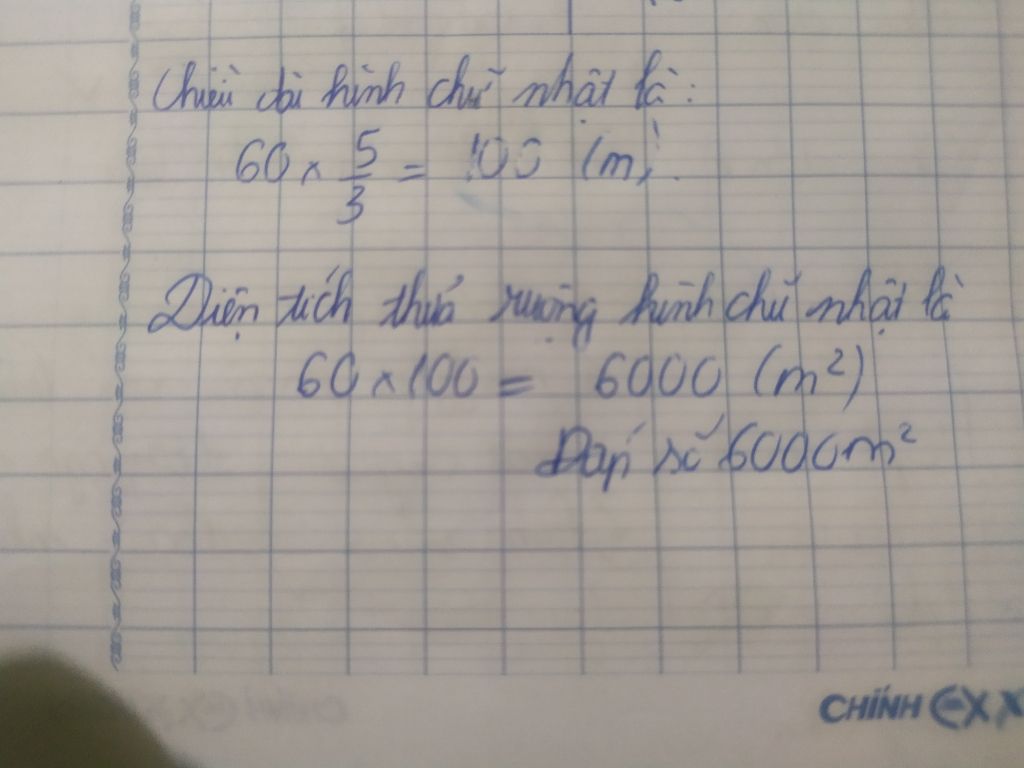 Chiều dài hình chữ nhật là:
60 × 5/3 = 100 (m)
Diện tích thửa ruộng hình chữ nhật là
60 × 100 = 6000 (m²)
Đáp số 6000m²
CHÍNH